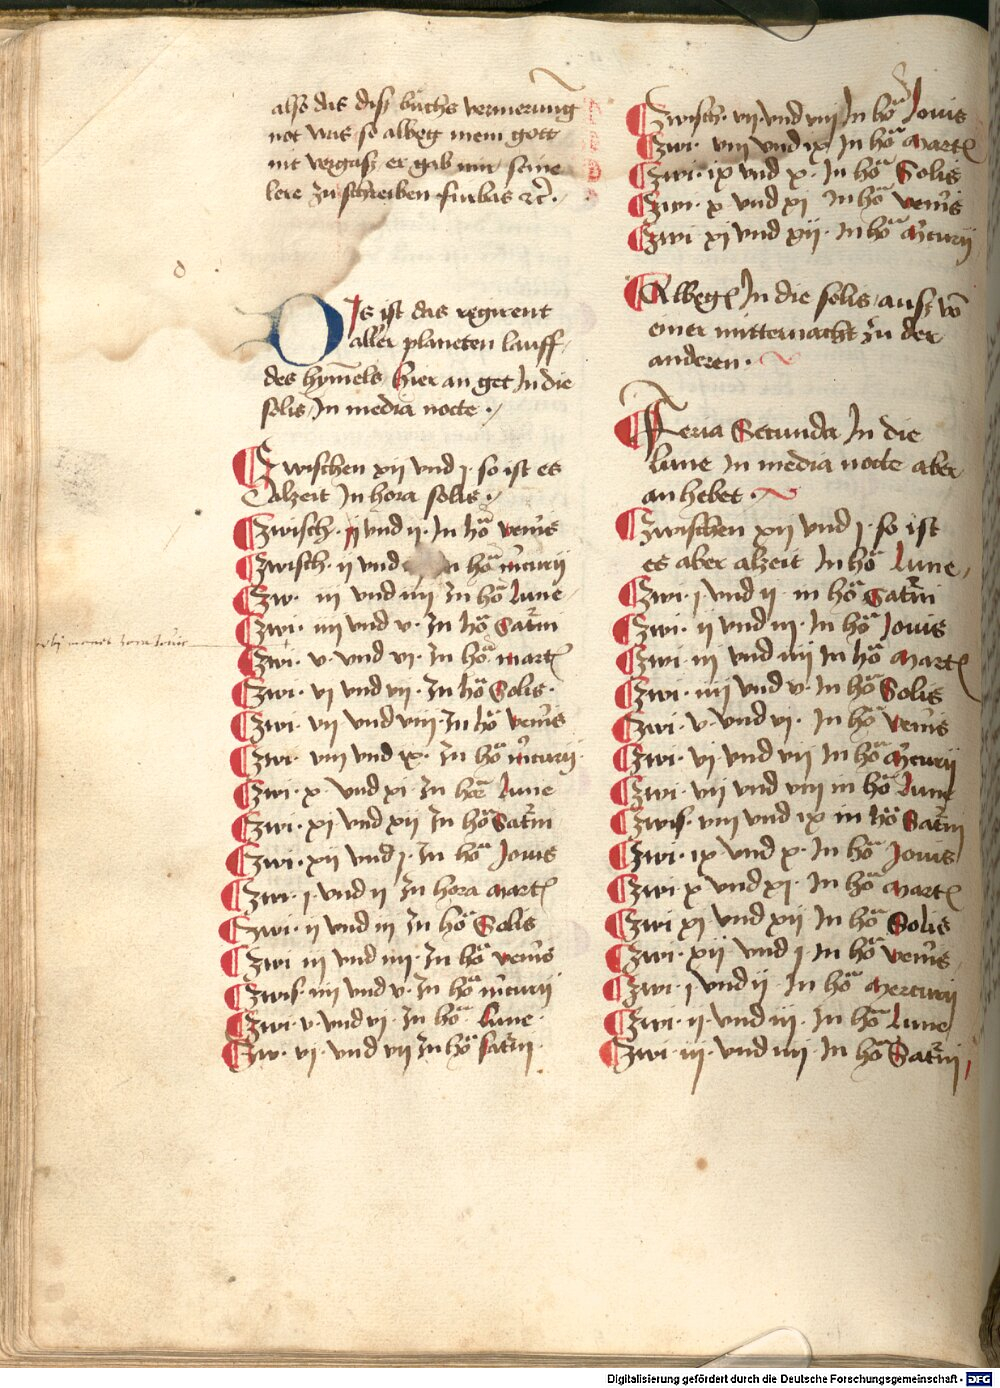 also das disz buchs vermerung
not was so alweg mein gott
nit vergasz er gab mir seine
lere zu schreiben furbas ⁊c̄.
DIs ist das regirent
aller planeten lauff
des hym̄els hier an get In die
solis In media nocte
Zwischen xij vnd j · so ist es
alzeit In hora solis
Zwisch · j vnd ij · In hoᵃ ven̾is
Zwisch · ij vnd n hoᵃ m̾curij
Zw · iij vnd iiij · In hoᵃ lune
Zwi · iiij vnd v · In hoᵃ Sat̾ni
Zwi · v · vnd vj · In hoᵃ mart
Zwi · vj vnd vij · In hoᵃ Solis ·
Zwi · vij vnd viij · In hoᵃ ven̾is
Zwi · viij vnd ix · In hoᵃ m̾curij ·
Zwi · x · vnd xj · In hoᵃ lune
Zwi · xj · vnd xij In hoᵃ Sat̾ni
Zwi · xij vnd j · In hoᵃ Jouis
Zwi · j · vnd ij In hora mart
Zwi · ij vnd iij In hoᵃ Solis
Zwi iij vnd iiij · In hoᵃ ven̾is
Zwis · iiij vnd v · In hoᵃ m̾curij
Zwi · v · vnd vj · In hoᵃ lune ·
Zw · vj · vnd vij In hoᵃ sat̾ni ·
Zwisch · vij · vnd viij In hoᵃ Jouis
Zwi · viij vnd ix In hoᵃ mart
Zwi · ix vnd x · In hoᵃ Solis
Zwi · x vnd xj In hoᵃ ven̾is
Zwi xj vnd xij · In hoᵃ m̾curij
Alweg In die solis ausz vō
einer mitternacht zu der
anderen ·
Feria Secunda In die
lune In media nocte aber
an hebet ·
Zwischen xij vnd j · so ist
es aber alzeit In hoᵃ lune
Zwi · j vnd ij · in hoᵃ Sat̾ni
Zwi · ij vnd iij · In hoᵃ Jouis
Zwi · iij vnd iiij In hoᵃ mart
Zwi · iiij vnd v · In hoᵃ Solis
Zwi · v · vnd vj · In hoᵃ ven̾is
Zwi · vj vnd vij In hoᵃ m̾curij
Zwi · vij vnd viij in hoᵃ lune
Zwis · viij vnd ix in hoᵃ Sat̾ni
Zwi · ix vnd x · In hoᵃ Jouis
Zwi x vnd xj · In hoᵃ mart
Zwi xj vnd xij In hoᵃ Solis
Zwi · xij vnd j · In hoᵃ ven̾is
Zwi · j vnd ij · In hoᵃ mercurij
Zwi · ij · vnd iij · In hoᵃ lune
Zwi · iij · vnd iiij · In hoᵃ Sat̾ni
Digitalisierung gefördert durch die Deutsche Forschungsgemeinschaft - DFG